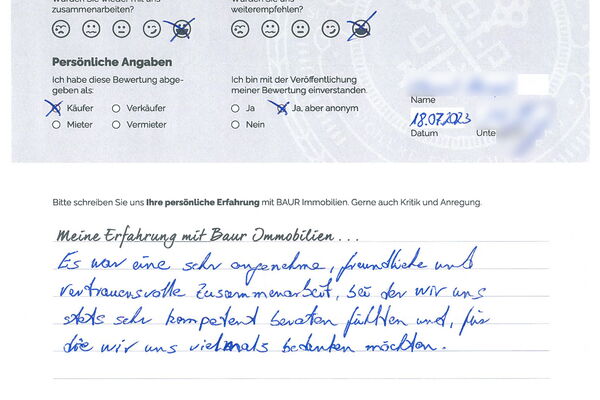 Würden Sie wieder mit uns
zusammenarbeiten?
Würden Sie uns
weiterempfehlen?
Persönliche Angaben
Ich habe diese Bewertung abge-
geben als:
Käufer Verkäufer
Mieter Vermieter
Ich bin mit der Veröffentlichung
meiner Bewertung einverstanden.
Ja Ja, aber anonym
Nein
Name
18.07.2023
Datum Unte
Bitte schreiben Sie uns Ihre persönliche Erfahrung mit BAUR Immobilien. Gerne auch Kritik und Anregung.
Meine Erfahrung mit Baur Immobilien...
Es war eine sehr angenehme, freundliche und
vertrauensvolle Zusammenarbeit, bei der wir uns
stets sehr kompetent beraten fühlten und, für
die wir uns vielmals bedanken möchten.